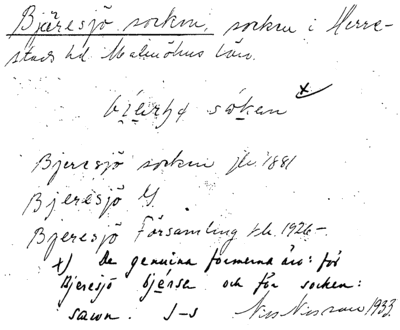 Bjäresjö socken, socken i Herre-
stads hd Malmöhus län.
Bjeresjö socken jb. 1881
Bjeresjö
Bjeresjö Församling 1926-
x) De genuina formerna äro: för
Bjeresjö bjérsa och för socken:
sawn. J-s Nils Nilsson 1933